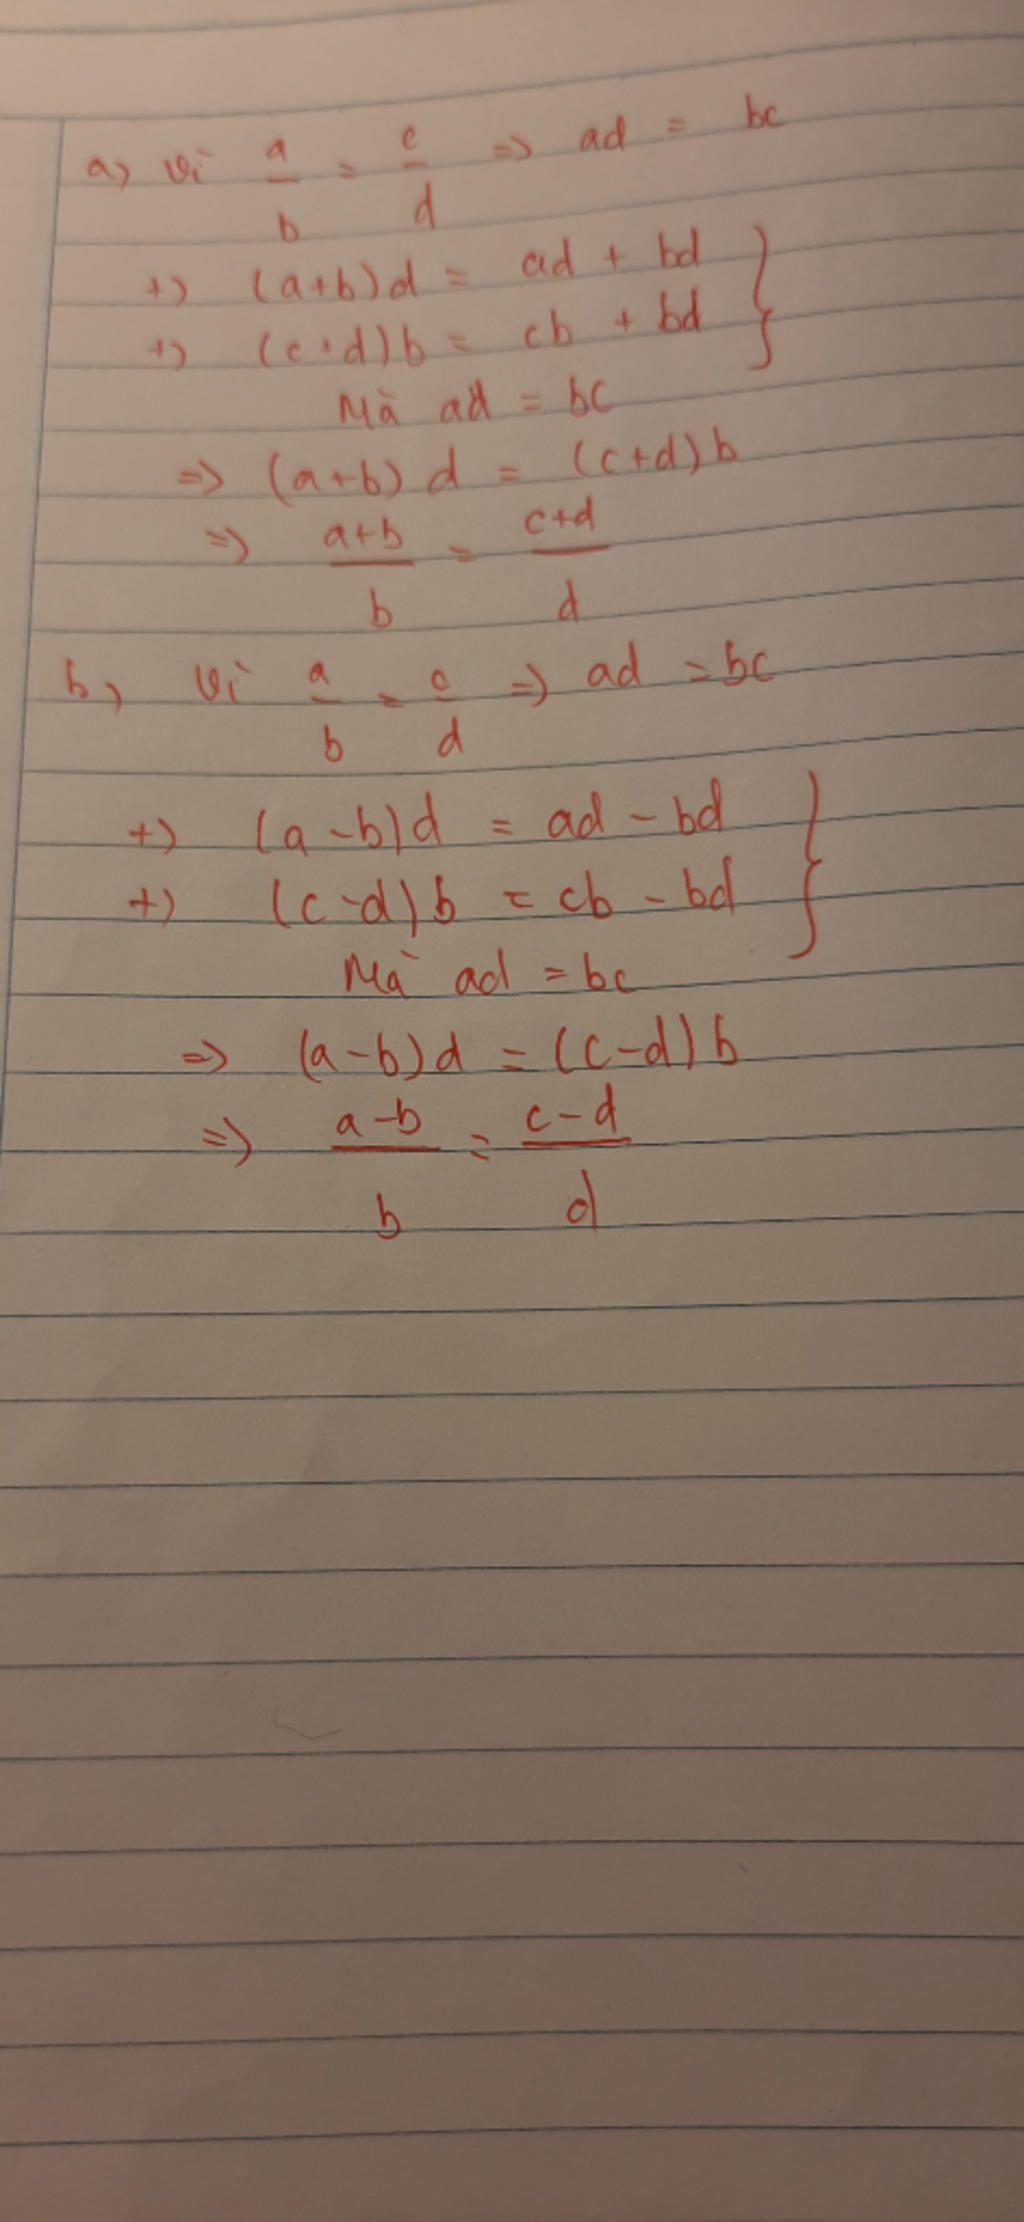 a) Vì a/b = c/d => ad = bc
+) (a+b)d = ad + bd }
+) (c+d)b = cb + bd
Mà ad = bc
=> (a+b) d = (c+d) b
=> a+b/b = c+d/d
b, Vì a/b = c/d => ad = bc
+) (a-b)d = ad - bd }
+) (c-d)b = cb - bd
Mà ad = bc
=> (a-b)d = (c-d) b
=> a-b/b = c-d/d